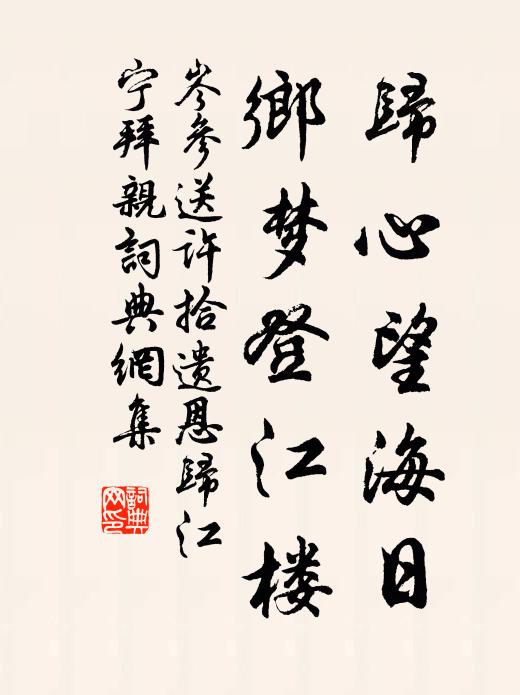 歸心望海日
鄉梦登江楼
岑參送許拾遺恩歸江
宁拜親詞典網集
詞典网印